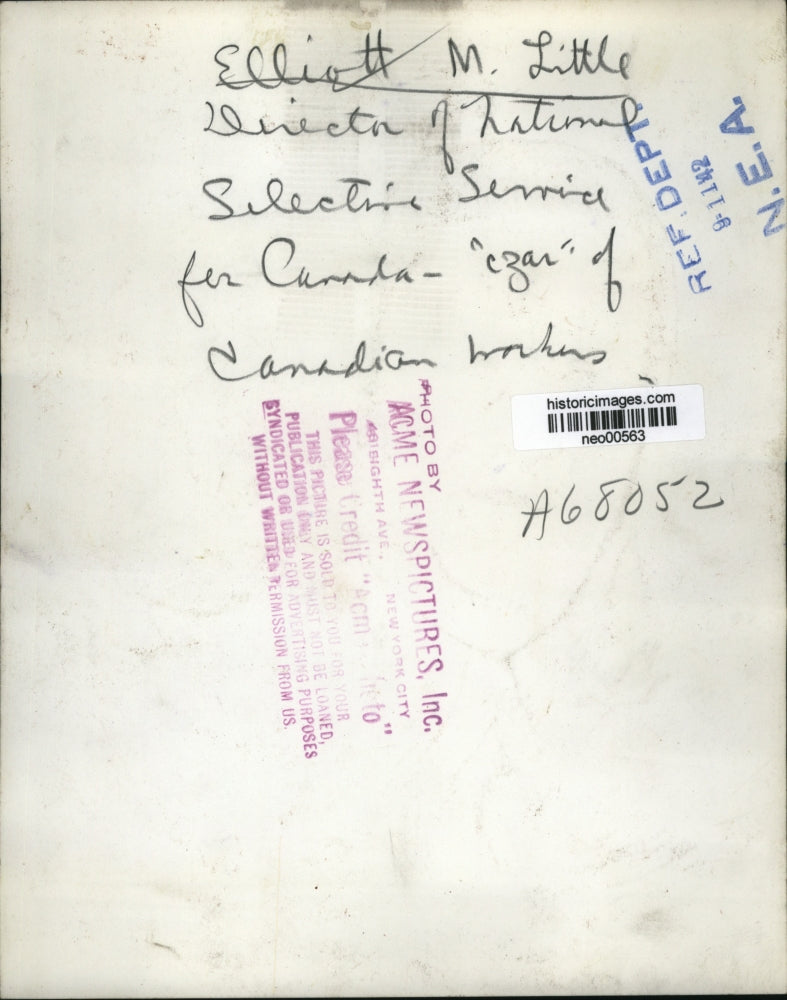 Elliott M. Little
Director of National
Selective Service
for Canada - "czar" of
Canadian workers
REF. DEPT.
9-11 42
N.E.A.
historicimages.com
neo00563
A68052
PHOTO BY
ACME NEWSPICTURES, Inc.
461 EIGHTH AVE., NEW YORK CITY
Please Credit "Acme Photo"
THIS PICTURE IS SOLD TO YOU FOR YOUR
PUBLICATION ONLY AND MUST NOT BE LOANED,
SYNDICATED OR USED FOR ADVERTISING PURPOSES
WITHOUT WRITTEN PERMISSION FROM US.